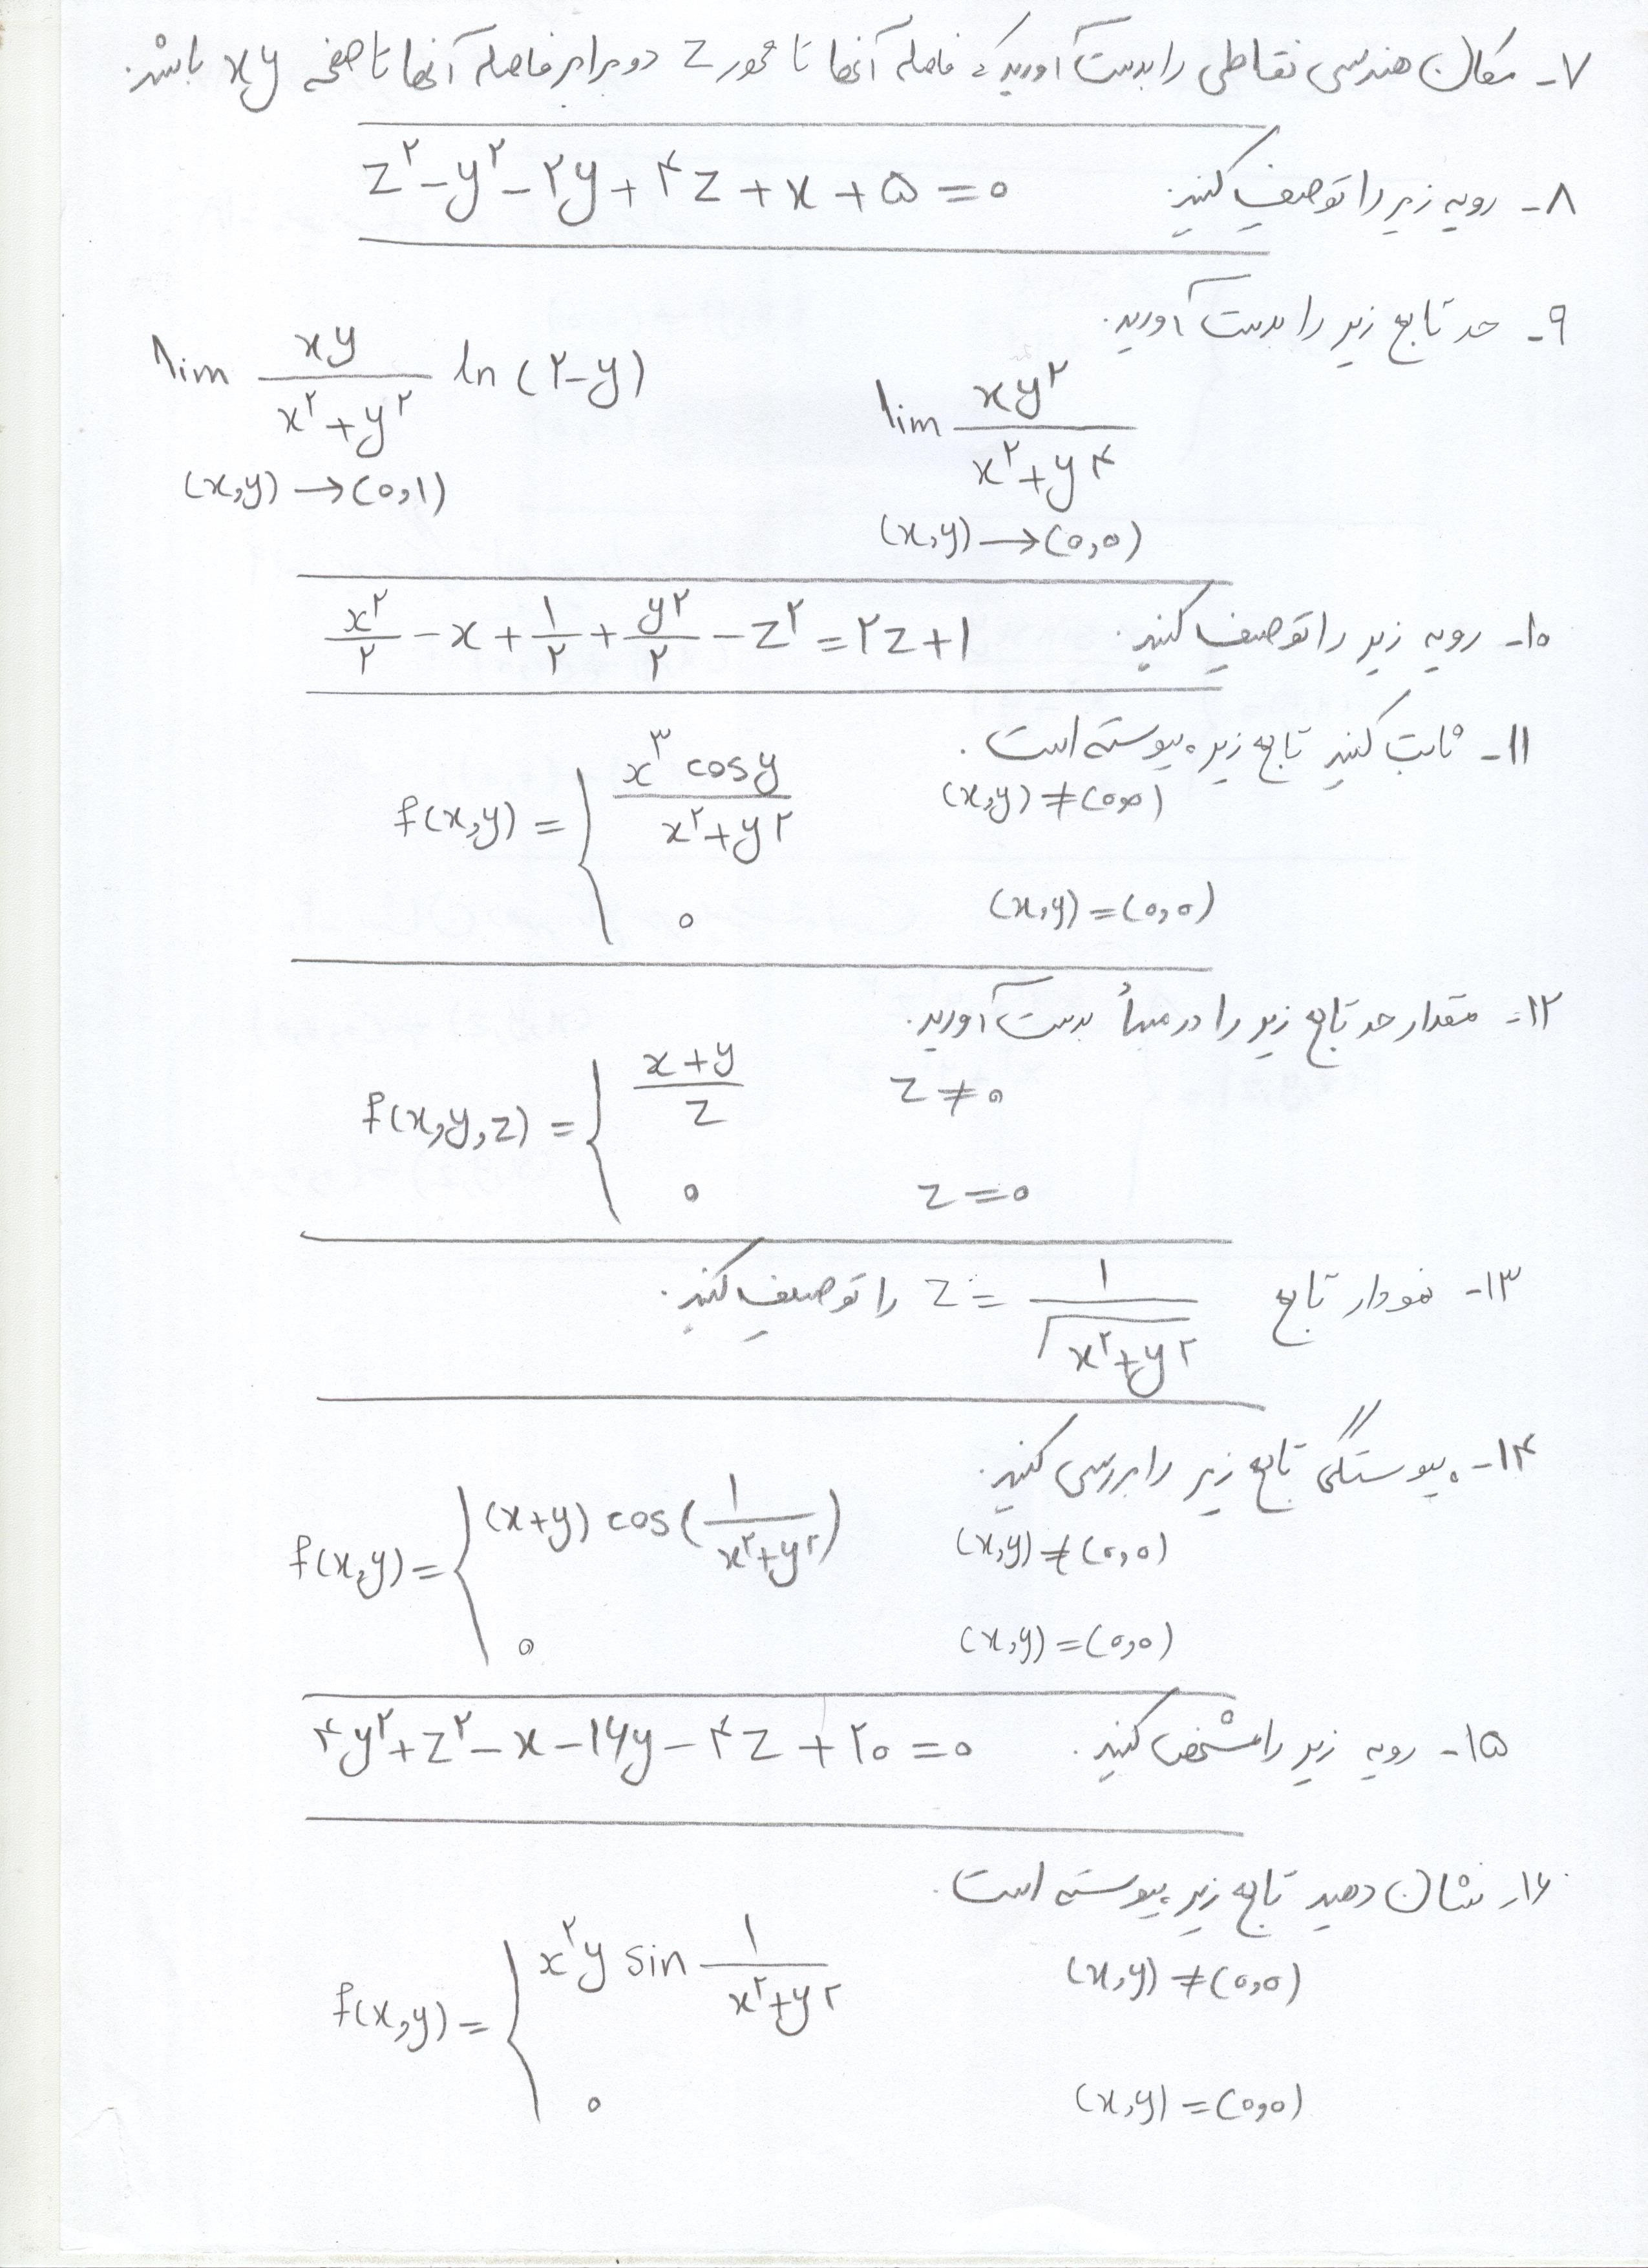 ۷- مکان هندسی نقاطی را بدست آورید که فاصله آنها تا محور z دو برابر فاصله آنها تا صفحه xy باشد.
۸- رویه زیر را توصیف کنید. z^۲ - y^۲ - ۲y + ۴z + x + ۵ = ۰
۹- حد تابع زیر را بدست آورید.
lim xy^۲ / x^۲+y^۴ (x,y) → (۰,۰)
lim xy / x^۲+y^۲ ln (۲-y) (x,y) → (۰,۱)
۱۰- رویه زیر را توصیف کنید. x^۲/۲ - x + ۱/۲ + y^۲/۲ - z^۲ = ۲z+۱
۱۱- ثابت کنید تابع زیر پیوسته است.
f(x,y) = { x^۳ cosy / x^۲+y^۲ (x,y) ≠ (۰,۰)
۰ (x,y) = (۰,۰)
۱۲- مقدار حد تابع زیر را در مبدأ بدست آورید.
f(x,y,z) = { x+y / z z ≠ ۰
۰ z = ۰
۱۳- نمودار تابع z = ۱ / √x^۲+y^۲ را توصیف کنید.
۱۴- پیوستگی تابع زیر را بررسی کنید.
f(x,y) = { (x+y) cos(۱ / x^۲+y^۲) (x,y) ≠ (۰,۰)
۰ (x,y) = (۰,۰)
۱۵- رویه زیر را مشخص کنید. ۴y^۲ + z^۲ - x - ۱۶y - ۴z + ۲۰ = ۰
۱۶- نشان دهید تابع زیر پیوسته است.
f(x,y) = { x^۲y sin ۱ / x^۲+y^۲ (x,y) ≠ (۰,۰)
۰ (x,y) = (۰,۰)